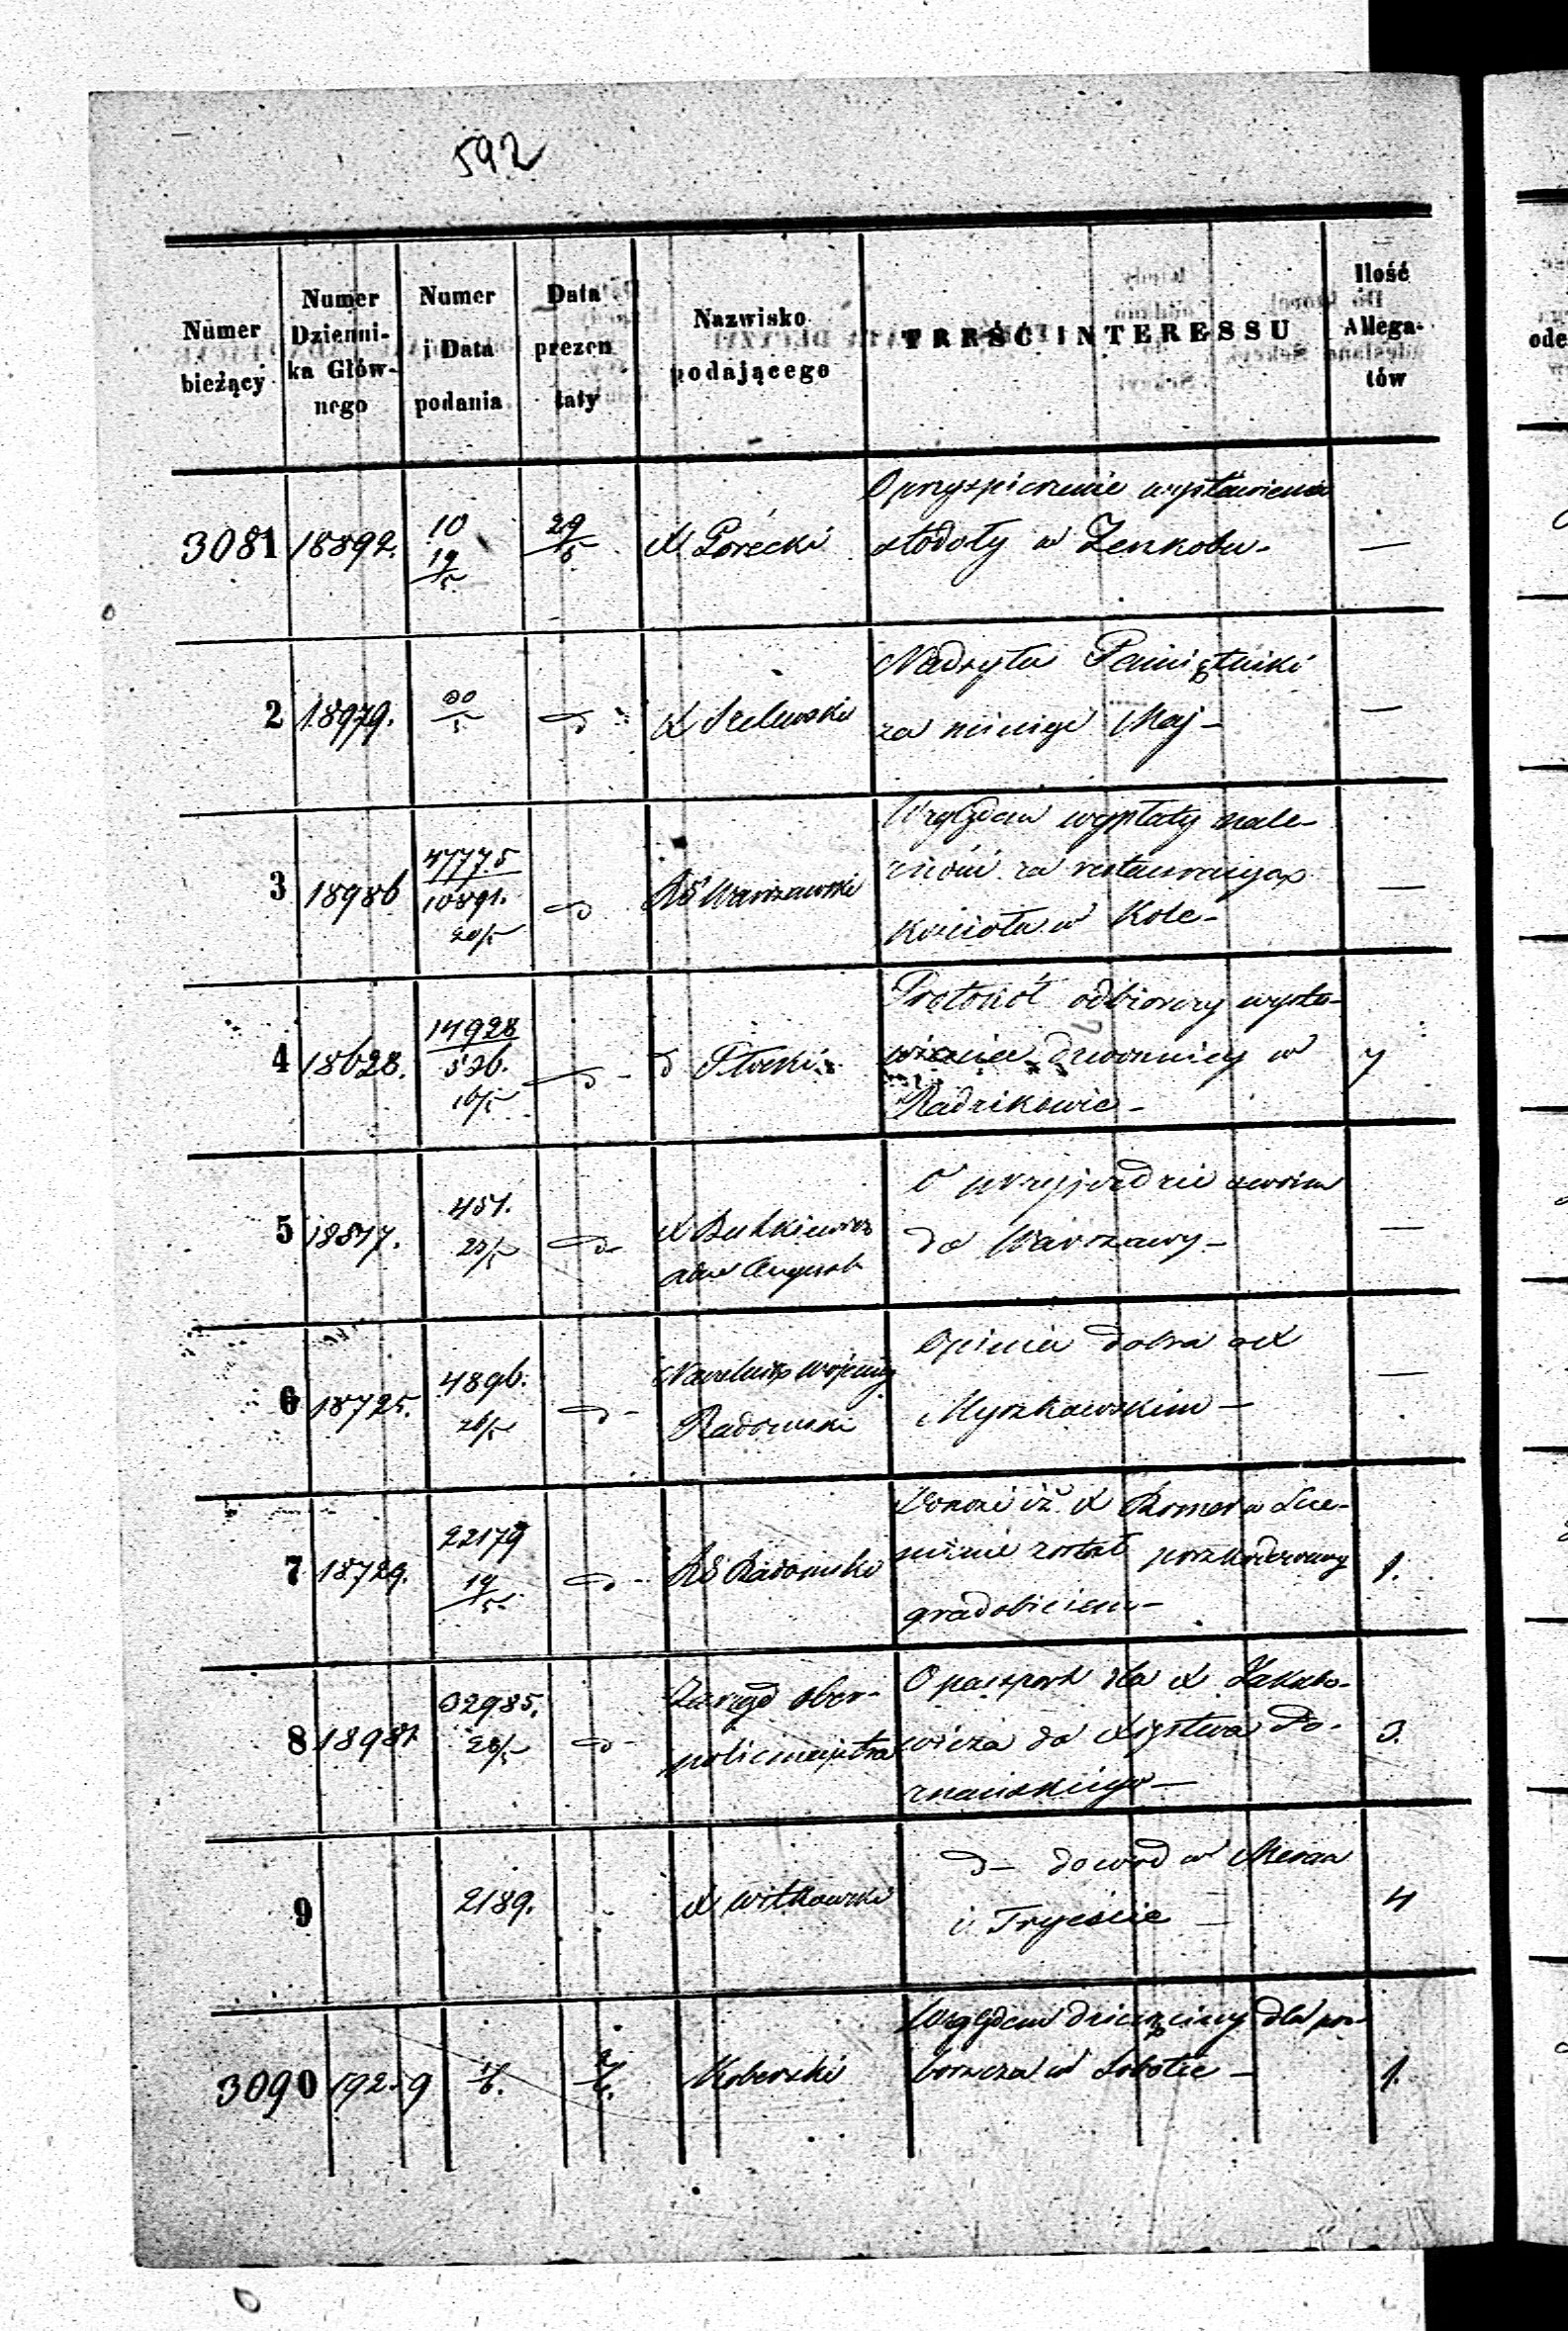 592
Numer bieżący
Numer Dzienni-
ka Głów-
nego
Numer
i Data
podania
Data
prezen
taty
Nazwisko
podającego
TREŚĆ INTERESSU
Ilość
Allega-
tów
3081 18892. 10 19/5 29/5 X Porecki O przyspieszenie wystawienia
stodoły w Zenkobu- —
2 18979. 30/5 d X Szelewski Nadsyła Pamiętniki
za miesiąc Maj- —
3 18986 47775 10891. 20/5 d RG Warszawski Względem wypłaty nale-
żności za restauracyą
kościoła w Kole- —
4 18628. 14928 526. 16/5 d d Płocki Protokół odbiorczy wysta-
wienia dzwonnicy w 7
Radzikowie-
5 18847. 451. 23/5 d X Butkiewicz O przyjeździe swoim
do Warszawy- —
6 18725. 4896. 26/5 d Naczelnik Wojenny Opinia dobra o X
Radomski Myszkowskim- —
7 18729. 22179 19/5 d RG Radomski Donosi iż X Romer w
został poszkodowany 1.
gradobiciem-
8 18981 32985. 28/5 d Zarząd Ober- O paszport dla X Jakubo-
policmajstra wicza do Księstwa Po- 3.
znańskiego-
9 2189. X Witkowski d- do wód w Meran
i Tryeście — 4
3090 19259 1/6. 2/6. Koberski Względem dziesięciny dla pro-
boszcza w Sobocie- 1.